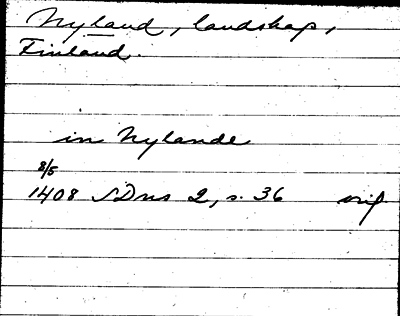 Nyland, landskap,
Finland.
in Nylande
8/5
1408 SDns 2, s. 36 orig